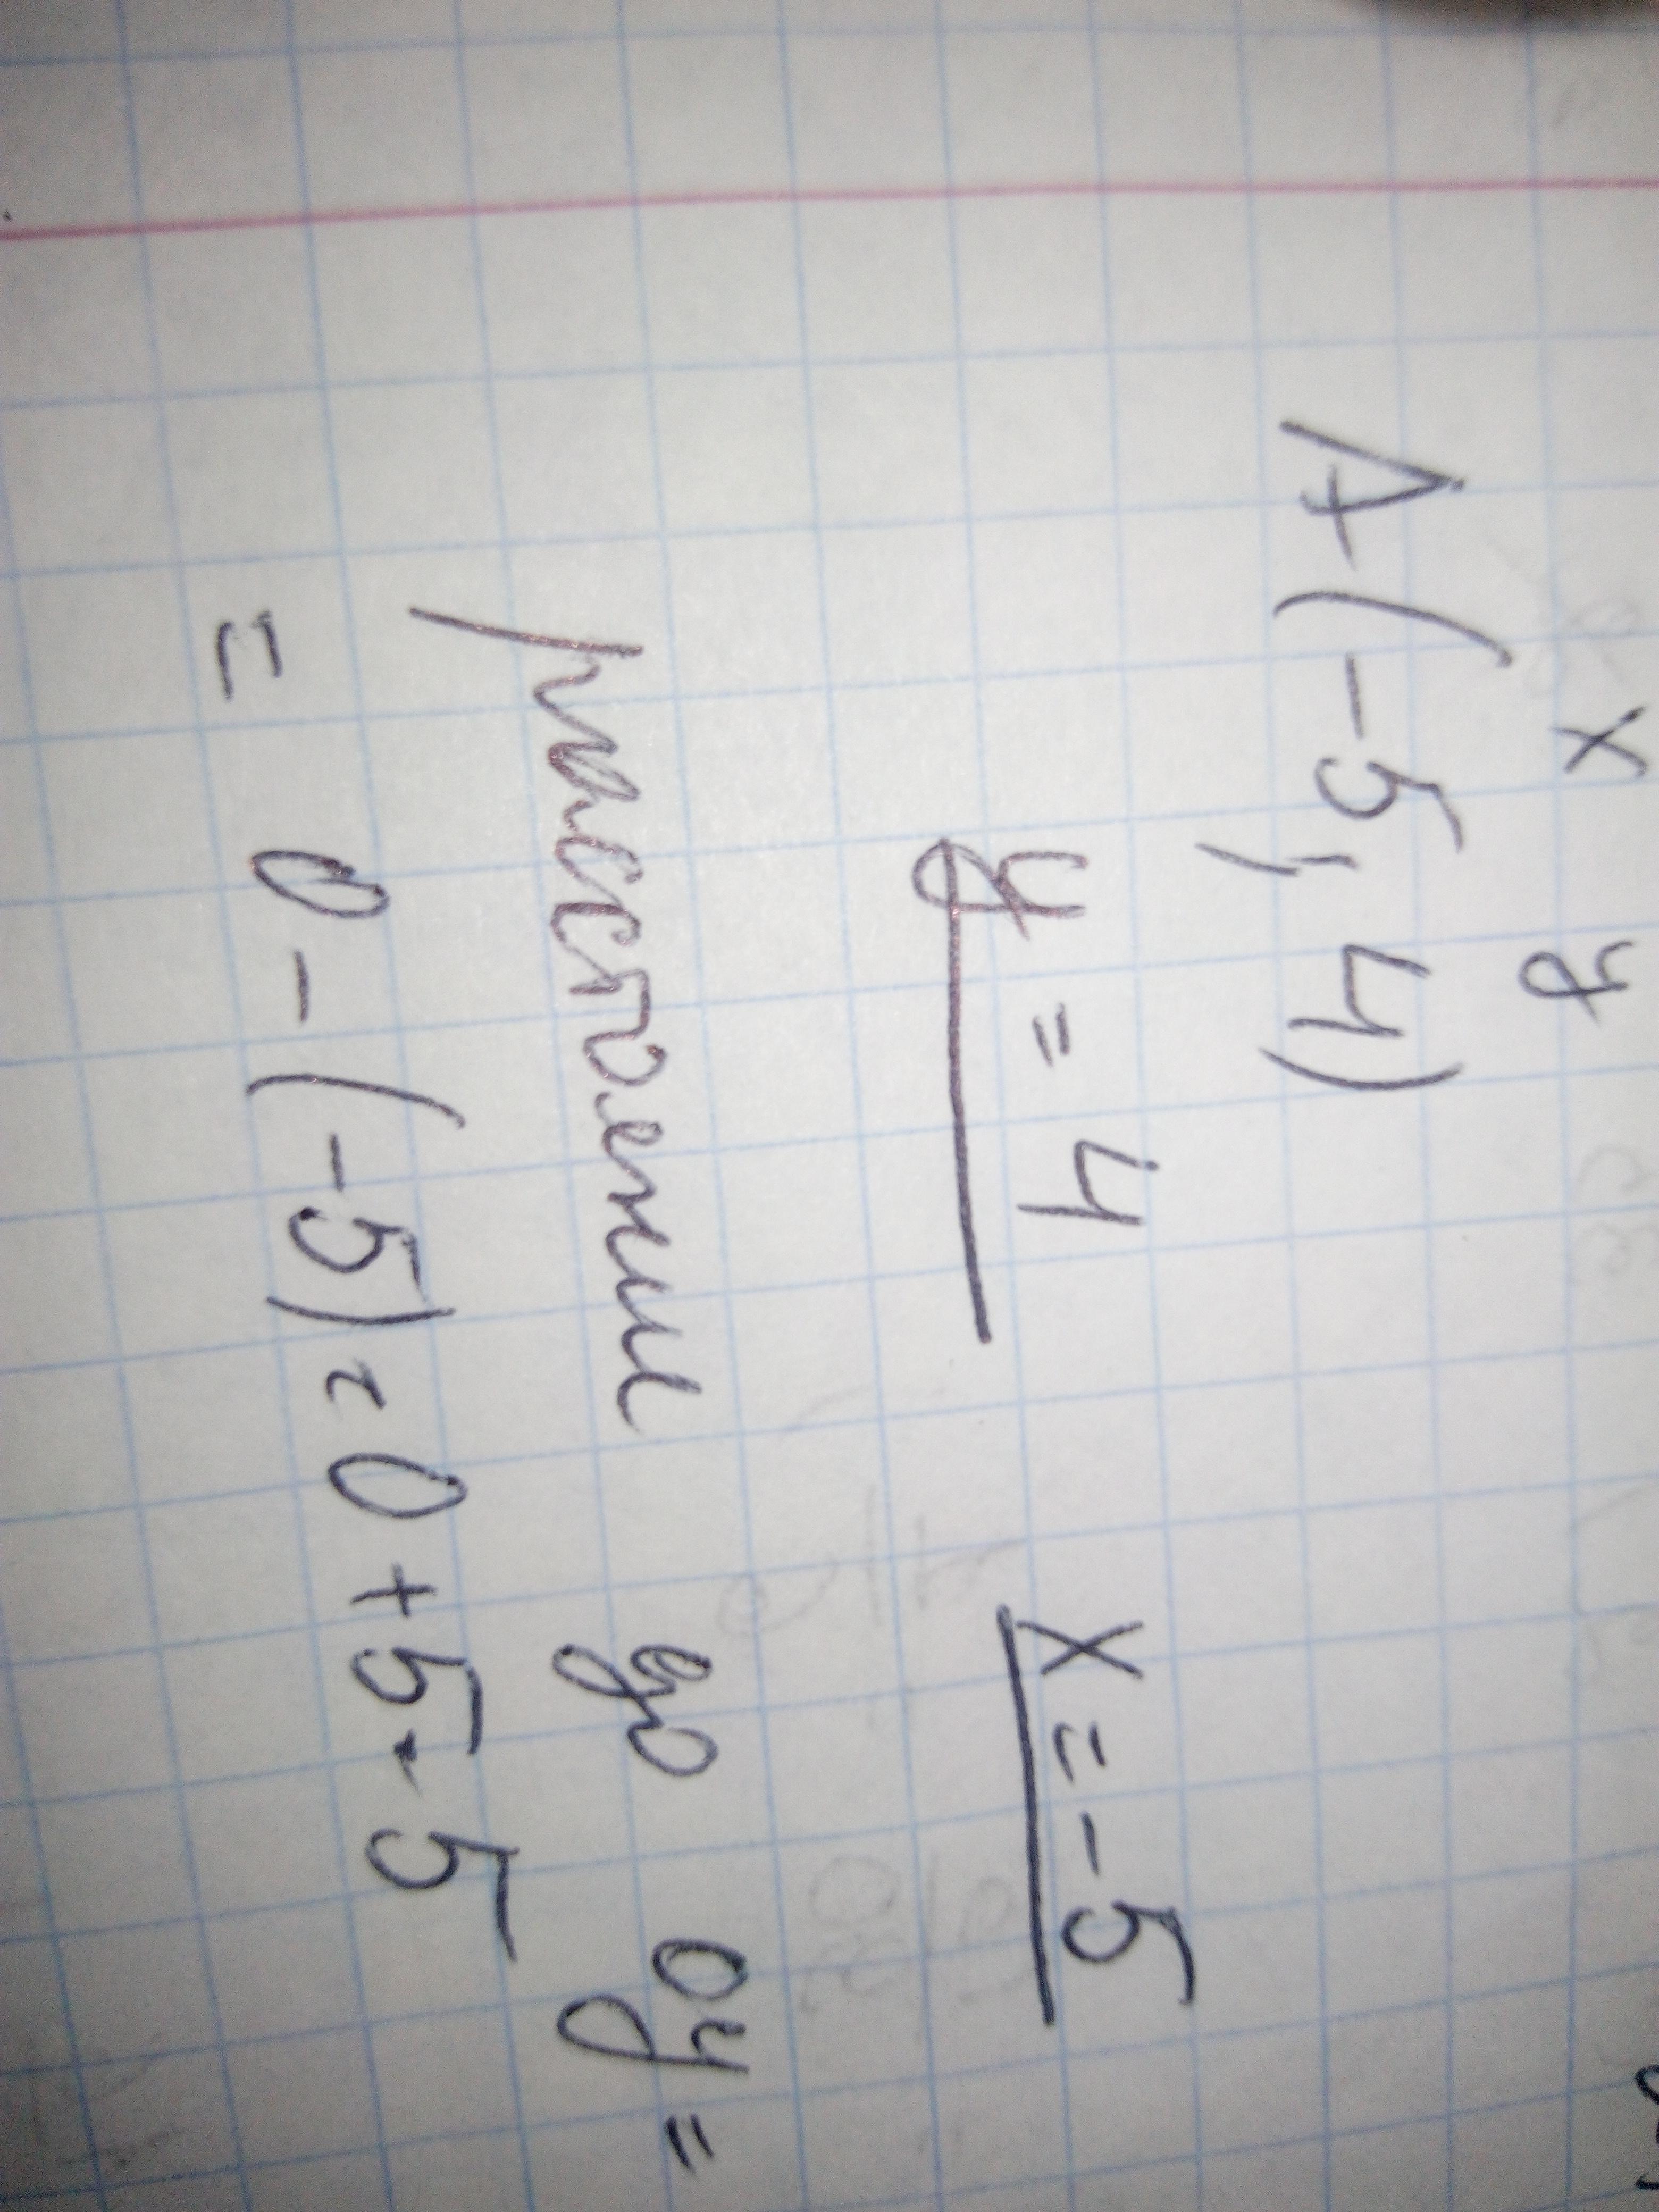 x y
A (-5; 4)
y = 4 x = -5
расстоении до оy =
= 0 - (-5) = 0 + 5 = 5